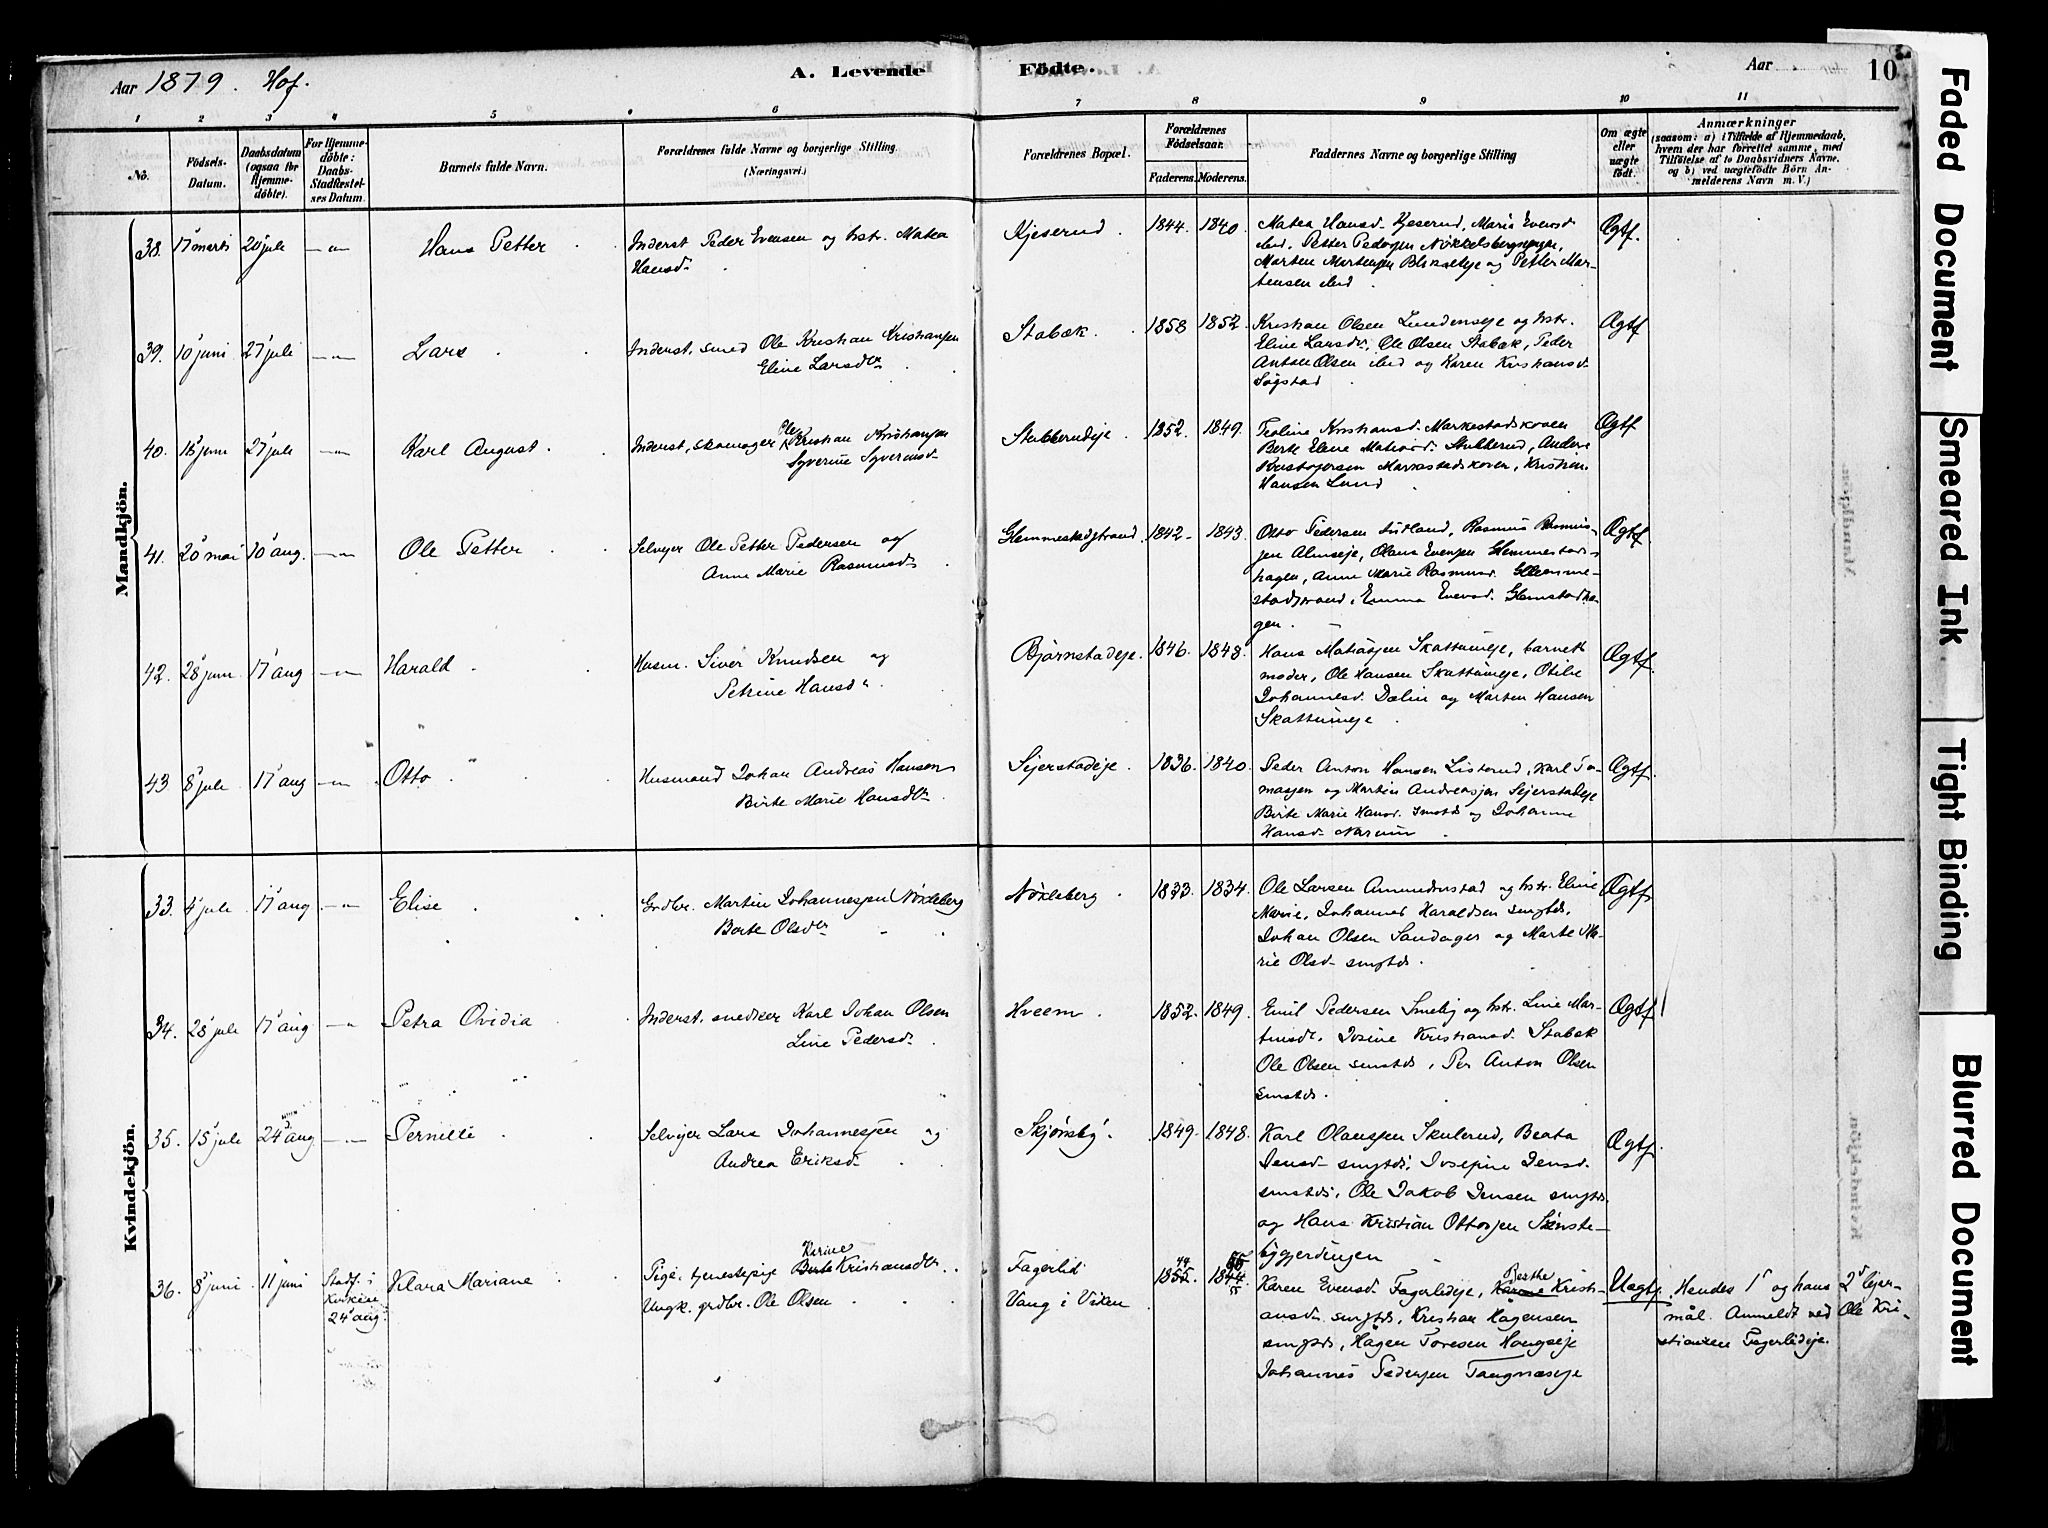 Aar 1879. Hof. A. Levende
Födte. Aar 10
1 2 3 4 5 6
7 8 9 10 11
No. Födsels-Datum. Daabsdatum (ogsaa for Hjemmedöbte). For Hjemmedöbte: Daabs-Stadfæstelses Datum. Barnets fulde Navn. Forældrenes fulde Navne og borgerlige Stilling. (Næringsvei.)
Forældrenes Bopæl. Forældrenes Födselsaar. Faderens. Moderens. Faddernes Navne og borgerlige Stilling Om ægte eller uægte födt. Anmærkninger (saasom: a) i Tilfælde af Hjemmedaab, hvem der har forrettet samme, med Tilföielse af to Daabsvidners Navne. og b) ved uægtefödte Börn Anmelderens Navn m. V.)
Mandkjön.
38. 17 marts 20 juli Hans Petter Inderst Peder Evensen og hstr. Matea
Hansd.
Kjeserud 1844. 1840. Matea Hansd. Kjeserud, Marie Evensd
ibid, Petter Pedersen Nøkkelsbergseie,
Marten Martensen Blikseteje og Petter Mar-
tensen ibid
Ægtf.
39. 10 juni 27 juli Lars Inderst, smed Ole Kristian Kristiansen
Eline Larsdr
Stabæk. 1858 1852. Kristian Olsen Lundenseje og hstr.
Eline Larsdr, Ole Olsen Stabæk, Peder
Anton Olsen ibid og Karen Kristiansd.
Søgstad
Ægtf
40. 18 juni 27 juli Karl August. Inderst, skomager Ole Kristian Kristiansen
Syverine Syverinsd.
Stubberudeje. 1852. 1849. Teoline Kristiansd. Markestadskoven
Berte Eline Matiasd. Stubberud, Anders
Kristofersen Markestadskoven, Kristian
Hansen Lund
Ægtf
41. 20 mai 10 aug. Ole Petter Selvejer Ole Petter Pedersen og
Anne Marie Rasmusdr
Glemmestadstrand. 1842 1843. Otto Pedersen Rasmus Rasmus-
sen Almseje, Olaus Evensen Glemmestad-
hagen, Anne Marie Rasmusd. Glemme-
stadstrand, Emma Evensd. Glemstadha-
gen.
Ægtf.
42. 28 juni 17 aug Harald Husm. Siver Knudsen og
Petrine Hansdr.
Bjørnstadeje. 1846. 1848. Hans Matiasen Skattumeje, barnets
moder, Ole Hansen Skattumeje, Otilie
Johannesd. Dælin og Marten Hansen
Skattumeje
Ægtf.
43 8 juli 17 aug Otto Husmand Johan Andreas Hansen
Birte Marie Hansdtr.
Sejerstadeje. 1836. 1840. Peder Anton Hansen Listerud, Karl To-
masen og Martin Andreassen Sejerstadeje
Birte Marie Hansd. smstds og Johanne
Hansd. Narum
Ægtf.
Kvindekjön.
33. 4 juli 17 aug Elise Grdbr. Martin Johannessen Nøkleberg
Berte Olsdtr
Nøkleberg 1833. 1834. Ole Larsen Ammundrustad og hstr. Eline
Marie, Johannes Haraldsen smstds,
Johan Olsen Sandager og Marte Ma-
rie Olsd. smstds.
Ægtf.
34. 28 juli 17 aug Petra Ovidia Inderst. snedker Karl Johan Olsen
Line Pedersd.
Hveem. 1852. 1849. Emil Pedersen Smeby og hstr. Line Mar-
tinsdr, Josine Kristiansd. Stabæk
Ole Olsen smstds, Per Anton Olsen
smstds.
Ægtf
35. 15 juli 24 aug. Pernille Selvejer Lars Johannessen og
Andrea Eriksdr.
Skjønsby. 1849. 1848. Karl Olaussen Skulerud, Beata
Jensd. smstds, Josefine Jensd.
smstds, Ole Jakob Jensen smstds
og Hans Kristian Ottosen Sønste-
bygjerdingen
Ægtf.
36. 8 juni 11 juni Stadf. i
Kirken
24 aug.
Klara Mariane Pige, tjenestepige Berte Karine Kristiansdtr.
Ungk. grdbr. Ole Olsen
Fagerlid
Vang i Viken
44
1855. 1844 55
Karen Evensd. Fagerlideje, Karine Berthe Kristi-
ansd. smstds, Kristian Hagensen
smstds, Hagen Toresen Hongseje
Johannes Pedersen Tangnæseje
Uægtf. Hendes 1 og hans 2 lejer-
mål. Anmeldt ved Ole Kri-
stiansen Fagerlideje.
Faded Document
Smeared Ink
Tight Binding
Blurred Document